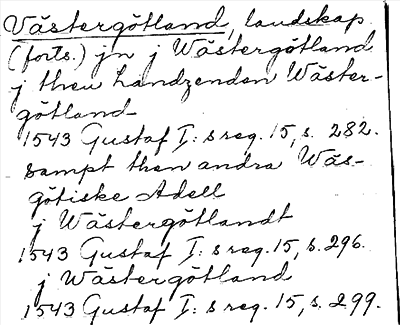 Västergötland, landskap
(forts.) jn j Wästergötland
j then handzenden Wäster-
götland
1543 Gustaf I:s reg. 15, s. 282.
sampt then andra Wäs-
götiske Adell
j Wästergötlandt
1543 Gustaf I:s reg. 15, s. 296.
j Wästergötland
1543 Gustaf I:s reg. 15, s. 299.